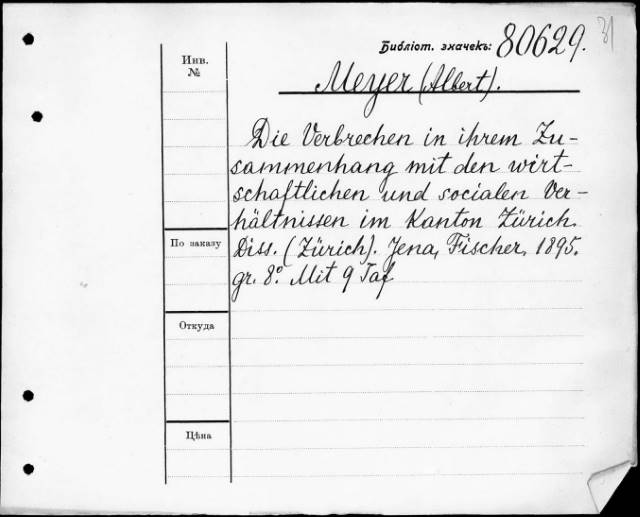 Библіот. значекъ: 80629.
Инв. №
Meyer (Albert).
Die Verbrechen in ihrem Zu-
sammenhang mit den wirt-
schaftlichen und socialen Ver-
hältnissen im Kanton Zürich.
Diss. (Zürich). Jena, Fischer, 1895.
gr. 8º. Mit 9 Taf
По заказу
Откуда
Цѣна